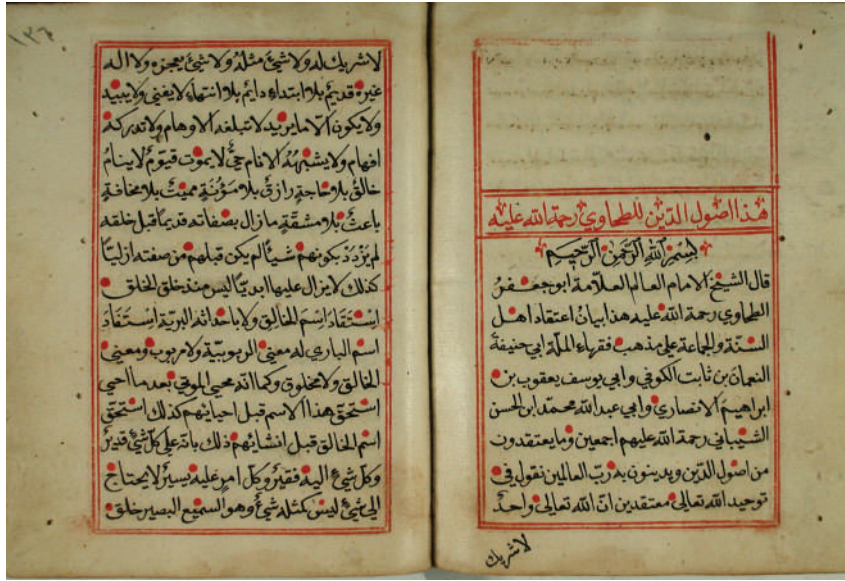 هذا اصول الدين للطحاوي رحمة الله عليه
بسم الله الرحمن الرحيم
قال الشيخ الامام العالم العلامة ابو جعفر
الطحاوي رحمة الله عليه هذا بيان اعتقاد اهل
السنة والجماعة على مذهب فقهاء الملة ابي حنيفة
النعمان بن ثابت الكوفي وابي يوسف يعقوب بن
ابراهيم الانصاري وابي عبد الله محمد ابن الحسن
الشيباني رحمة الله عليهم اجمعين وما يعتقدون
من اصول الدين ويدينون به رب العالمين نقول في
توحيد الله تعالى معتقدين ان الله تعالى واحد
لا شريك
١٣٦
لا شريك له ولا شئ مثله ولا شئ يعجزه ولا اله
غيره قديم بلا ابتداء دايم بلا انتهاء لا يفنى ولا يبيد
ولا يكون الا ما يريد لا تبلغه الاوهام ولا تدركه
افهام ولا يشبهه الانام حي لا يموت قيوم لا ينام
خالق بلا حاجة رازق بلا مؤنة مميت بلا مخافة
باعث بلا مشقة ما زال بصفاته قديما قبل خلقه
لم يزدد بكونهم شيئا لم يكن قبلهم من صفته ازليا
كذلك لا يزال عليها ابديا ليس منذ خلق الخلق
استفاد اسم الخالق ولا باحداثه البرية استفاد
اسم الباري له معنى الربوبية ولا مربوب ومعنى
الخالق ولا مخلوق وكما انه محيي الموتى بعد ما احيى
استحق هذا الاسم قبل احيائهم كذلك استحق
اسم الخالق قبل انشائهم ذلك بانه على كل شئ قدير
وكل شئ اليه فقير وكل امر عليه يسير لا يحتاج
الى شئ ليس كمثله شئ وهو السميع البصير خلق